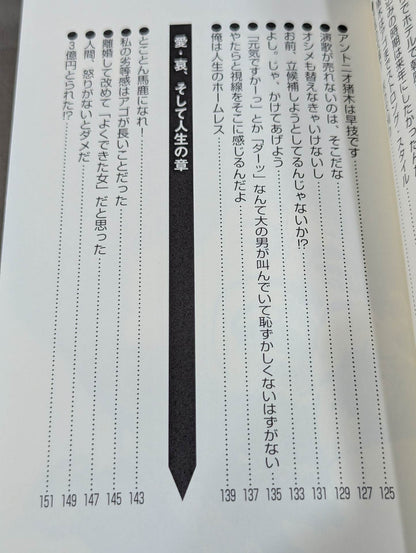 ●アントニオ猪木は早技です……125
●演歌が売れないのは、そこだな……127
●オシメも替えなきゃいけないし……129
●お前、立候補しようとしてるんじゃないか!?……131
●よし。じゃ、かけてあげよう……133
●「元気ですかーっ」とか「ダーッ」なんて大の男が叫んでいて恥ずかしくないはずがない……135
●やたらと視線をそこに感じるんだよ……137
●俺は人生のホームレス……139
愛・哀、そして人生の章
●とことん馬鹿になれ……143
●私の劣等感はアゴが長いことだった……145
●離婚して改めて「よくできた女」だと思った……147
●人間、怒りがないとダメだ……149
●3億円とられた!?……151